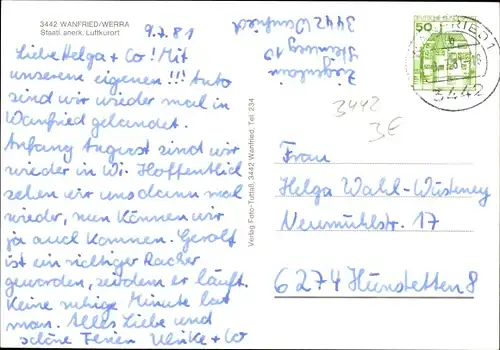 3442 WANFRIED/WERRA
Staatl. anerk. Luftkurort
9.7.81
Liebe Helga + Co! Mit
unserem eigenen!!! Auto
sind wir wieder mal in
Wanfried gelandet.
Anfang August sind wir
wieder in Wi. Hoffentlich
sehen wir uns dann mal
wieder, nun können wir
ja auch kommen. Gerolf
ist ein richtiger Racker
geworden, seitdem er läuft.
Keine ruhige Minute hat
man. Alles Liebe und
schöne Ferien Ulrike + Co
Ziegenhain
Steinweg 10
3442 Wanfried
Verlag Foto-Tutaß, 3442 Wanfried, Tel. 234
50
3442
3442
3E
Frau
Helga Wahl-Wüsteney
Neumühlstr. 17
6274 Hünstetten 8